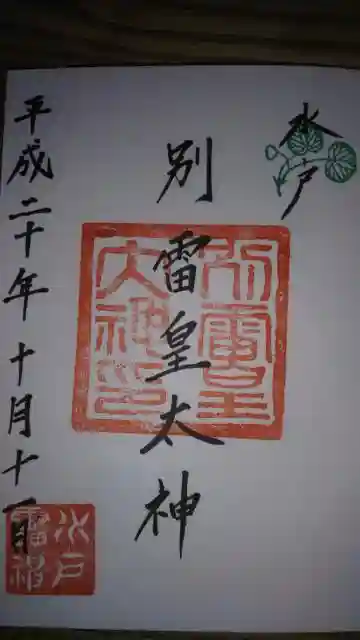 水戸
別雷皇太神
平成二十年十月十一日
別雷皇
大神印
水戸
雷神